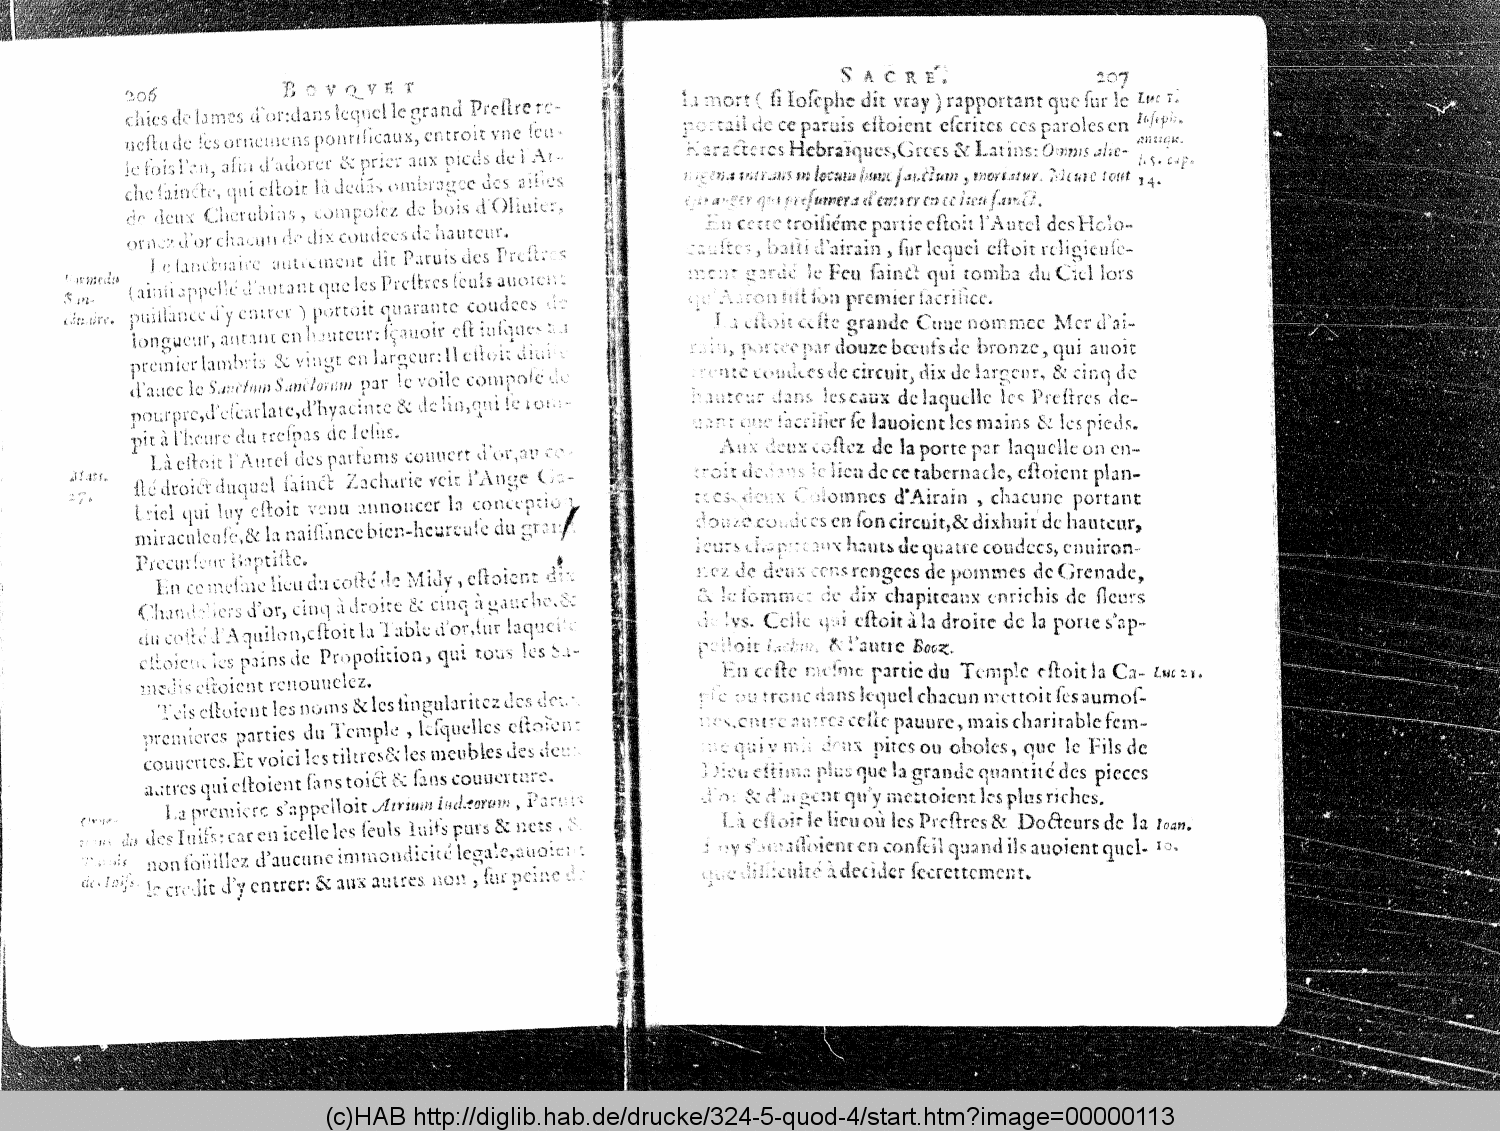 206 BOVQVET
chies de lames d'or: dans lequel le grand Prestre re-
uestu de ses ornemens pontificaux, entroit vne seu-
le fois l'en, afin d'adorer & prier aux pieds de l'Ar-
che saincte, qui estoit là dedãs ombragee des aisles
de deux Cherubins, composez de bois d'Oliuier,
ornez d'or chacun de dix coudees de hauteur.
Le sanctuaire autrement dit Paruis des Prestres
(ainsi appellé d'autant que les Prestres seuls auoient
puissance d'y entrer) portoit quarante coudees de
longueur, autant en hauteur: sçauoir est iusques au
premier lambris & vingt en largeur: Il estoit diuisé
d'auec le Sanctum Sanctorum par le voile composé de
pourpre, d'escarlate, d'hyacinte & de lin, qui se rom-
pit à l'heure du trespas de Iesus.
Là estoit l'Autel des parfums couuert d'or, au co-
sté droict duquel sainct Zacharie veit l'Ange Ga-
briel qui luy estoit venu annoncer la conceptio
miraculeuse, & la naissance bien-heureuse du grand
Precurseur Baptiste.
En ce mesme lieu du costé de Midy, estoient dix
Chandeliers d'or, cinq à droite & cinq à gauche, &
du costé d'Aquilon, estoit la Table d'or, sur laquelle
estoient les pains de Proposition, qui tous les Sa-
medis estoient renouuelez.
Tels estoient les noms & les singularitez des deux
premieres parties du Temple, lesquelles estoient
couuertes. Et voici les tiltres & les meubles des deux
autres qui estoient sans toict & sans couuerture.
La premiere s'appelloit Atrium Iudæorum, Paruis
des Iuifs: car en icelle les seuls Iuifs purs & nets, &
non soüillez d'aucune immondicité legale, auoient
le credit d'y entrer: & aux autres non, sur peine de
du
Sanctuaire.
Matt.
27.
du
Paruis
des Iuifs.
SACRÉ. 207
la mort (si Iosephe dit vray) rapportant que sur le
portail de ce paruis estoient escrites ces paroles en
Karacteres Hebraïques, Grecs & Latins: Omnis alie-
nigena intrans in locum hunc sanctum, moriatur. Meure tout
estranger qui presumera d'entrer en ce lieu sainct.
En cette troisiéme partie estoit l'Autel des Holo-
caustes, basti d'airain, sur lequel estoit religieuse-
ment gardé le Feu sainct qui tomba du Ciel lors
qu'Aaron fist son premier sacrifice.
Là estoit ceste grande Cuue nommee Mer d'ai-
rain, portee par douze bœufs de bronze, qui auoit
trente coudees de circuit, dix de largeur, & cinq de
hauteur dans les eaux de laquelle les Prestres de-
uant que sacrifier se lauoient les mains & les pieds.
Aux deux costez de la porte par laquelle on en-
troit dedans le lieu de ce tabernacle, estoient plan-
tees deux Colomnes d'Airain, chacune portant
douze coudees en son circuit, & dixhuit de hauteur,
leurs chapiteaux hauts de quatre coudees, enuiron-
nez de deux cens rengees de pommes de Grenade,
& le sommet de dix chapiteaux enrichis de fleurs
de lys. Celle qui estoit à la droite de la porte s'ap-
pelloit Iachin, & l'autre Booz.
En ceste mesme partie du Temple estoit la Ca-
pse ou tronc dans lequel chacun mettoit ses aumos-
nes, entre autres ceste pauure, mais charitable fem-
me qui y mit deux pites ou oboles, que le Fils de
Dieu estima plus que la grande quantité des pieces
d'or & d'argent qu'y mettoient les plus riches.
Là estoit le lieu où les Prestres & Docteurs de la
Loy s'amassoient en conseil quand ils auoient quel-
que difficulté à decider secrettement.
Luc 1.
Ioseph.
antiqu.
l. 5. cap.
14.
Luc 21.
Ioan.
10.
(c)HAB http://diglib.hab.de/drucke/324-5-quod-4/start.htm?image=00000113